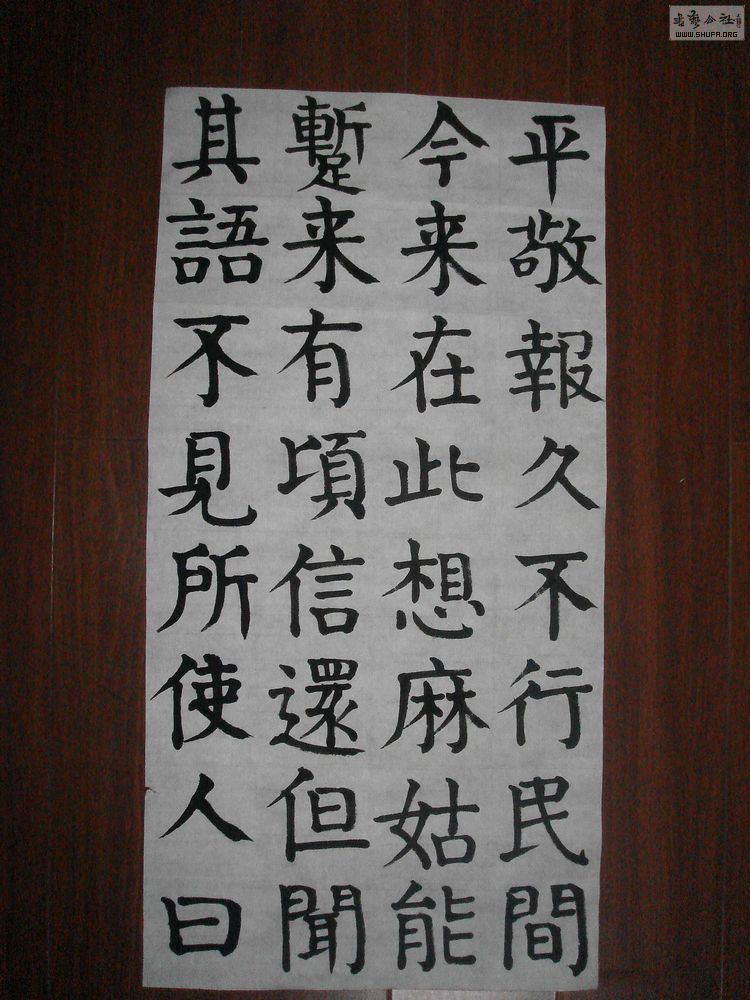 平敬報久不行民間
今来在此想麻姑能
蹔来有頃信還但聞
其語不見所使人曰
WWW.SHUFA.ORG